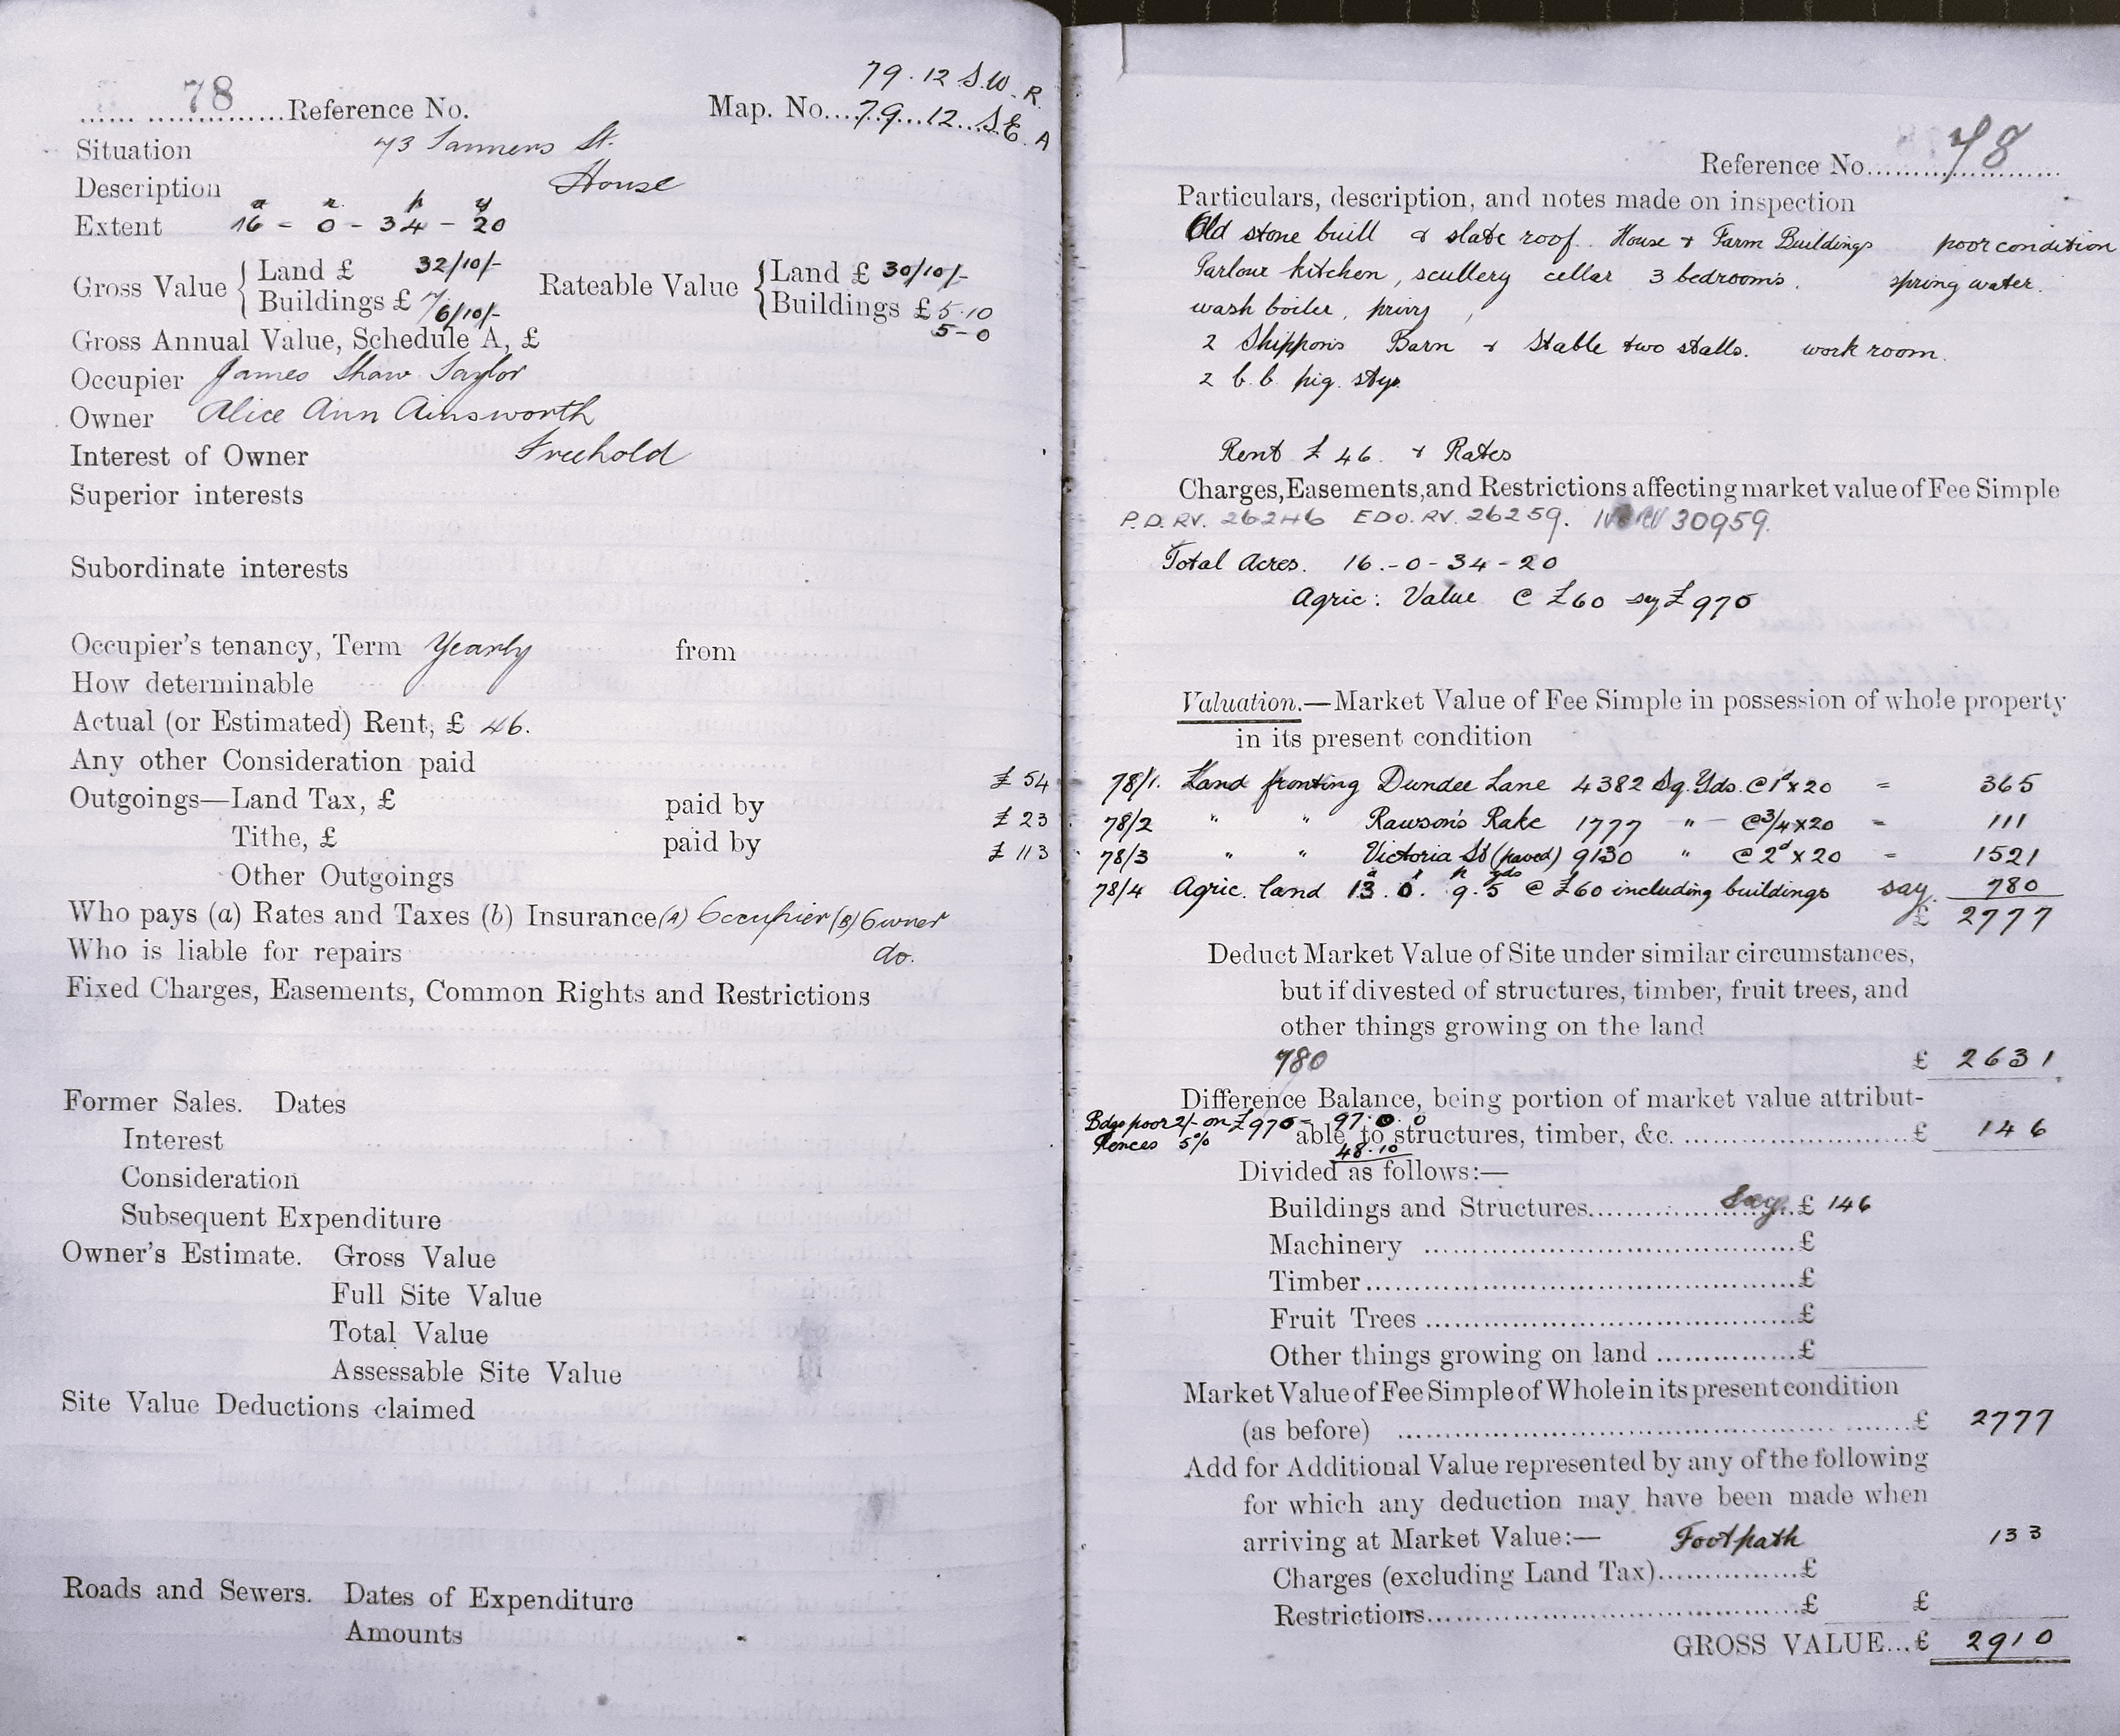 78 Reference No.
79.12 S.W. R.
Map. No....79...12...S.E. A
Situation 73 Tanners St.
Description House
a r p y
Extent 16 - 0 - 34 - 20
Gross Value { Land £ 32/10/- Rateable Value { Land £ 30/10/-
Buildings £ 7/6/10/- Buildings £ 5.10
5-0
Gross Annual Value, Schedule A, £
Occupier James Shaw Taylor
Owner Alice Ann Ainsworth
Interest of Owner Freehold
Superior interests
Subordinate interests
Occupier's tenancy, Term Yearly from
How determinable
Actual (or Estimated) Rent, £ 46.
Any other Consideration paid
£ 54
Outgoings—Land Tax, £ paid by
£ 23
Tithe, £ paid by
£ 113
Other Outgoings
Who pays (a) Rates and Taxes (b) Insurance (A) Occupier (B) Owner
Who is liable for repairs do.
Fixed Charges, Easements, Common Rights and Restrictions
Former Sales. Dates
Interest
Consideration
Subsequent Expenditure
Owner's Estimate. Gross Value
Full Site Value
Total Value
Assessable Site Value
Site Value Deductions claimed
Roads and Sewers. Dates of Expenditure
Amounts
Reference No. 78
Particulars, description, and notes made on inspection
Old stone built & slate roof. House & Farm Buildings poor condition
Parlour kitchen, scullery cellar 3 bedrooms. spring water.
wash boiler, privy,
2 Shippons Barn & Stable two stalls. work room.
2 b.b. pig. stys
Rent £ 46. & Rates
Charges, Easements, and Restrictions affecting market value of Fee Simple
P.D. RV. 26246 EDO. RV. 26259. 30959.
Total Acres. 16.-0-34-20
Agric: Value @ £60 say £970
Valuation.—Market Value of Fee Simple in possession of whole property
in its present condition
78/1. Land fronting Dundee Lane 4382 Sq. Yds. @ 1d x 20 = 365
78/2 " " Rawson's Rake 1777 " @ 3/4 x 20 = 111
78/3 " " Victoria St (paved) 9130 " @ 2d x 20 = 1521
a r p yds
78/4 Agric. land 13. 0. 9. 5 @ £60 including buildings say 780
£ 2777
Deduct Market Value of Site under similar circumstances,
but if divested of structures, timber, fruit trees, and
other things growing on the land
780
£ 2631
Difference Balance, being portion of market value attribut-
Bdgs poor 2/- on £970 = 97. 0. 0
able to structures, timber, &c. ........ £ 146
Fences 5% 48.10
Divided as follows:—
Buildings and Structures........ Say. £ 146
Machinery ........ £
Timber ........ £
Fruit Trees ........ £
Other things growing on land ........ £
Market Value of Fee Simple of Whole in its present condition
(as before) ........ £ 2777
Add for Additional Value represented by any of the following
for which any deduction may have been made when
arriving at Market Value:— Footpath 133
Charges (excluding Land Tax)........ £
Restrictions........ £ £
GROSS VALUE...£ 2910